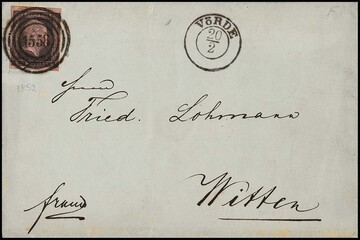 VÖRDE
20/2
1556
1852
Herrn
Fried. Lohmann
franco
Witten